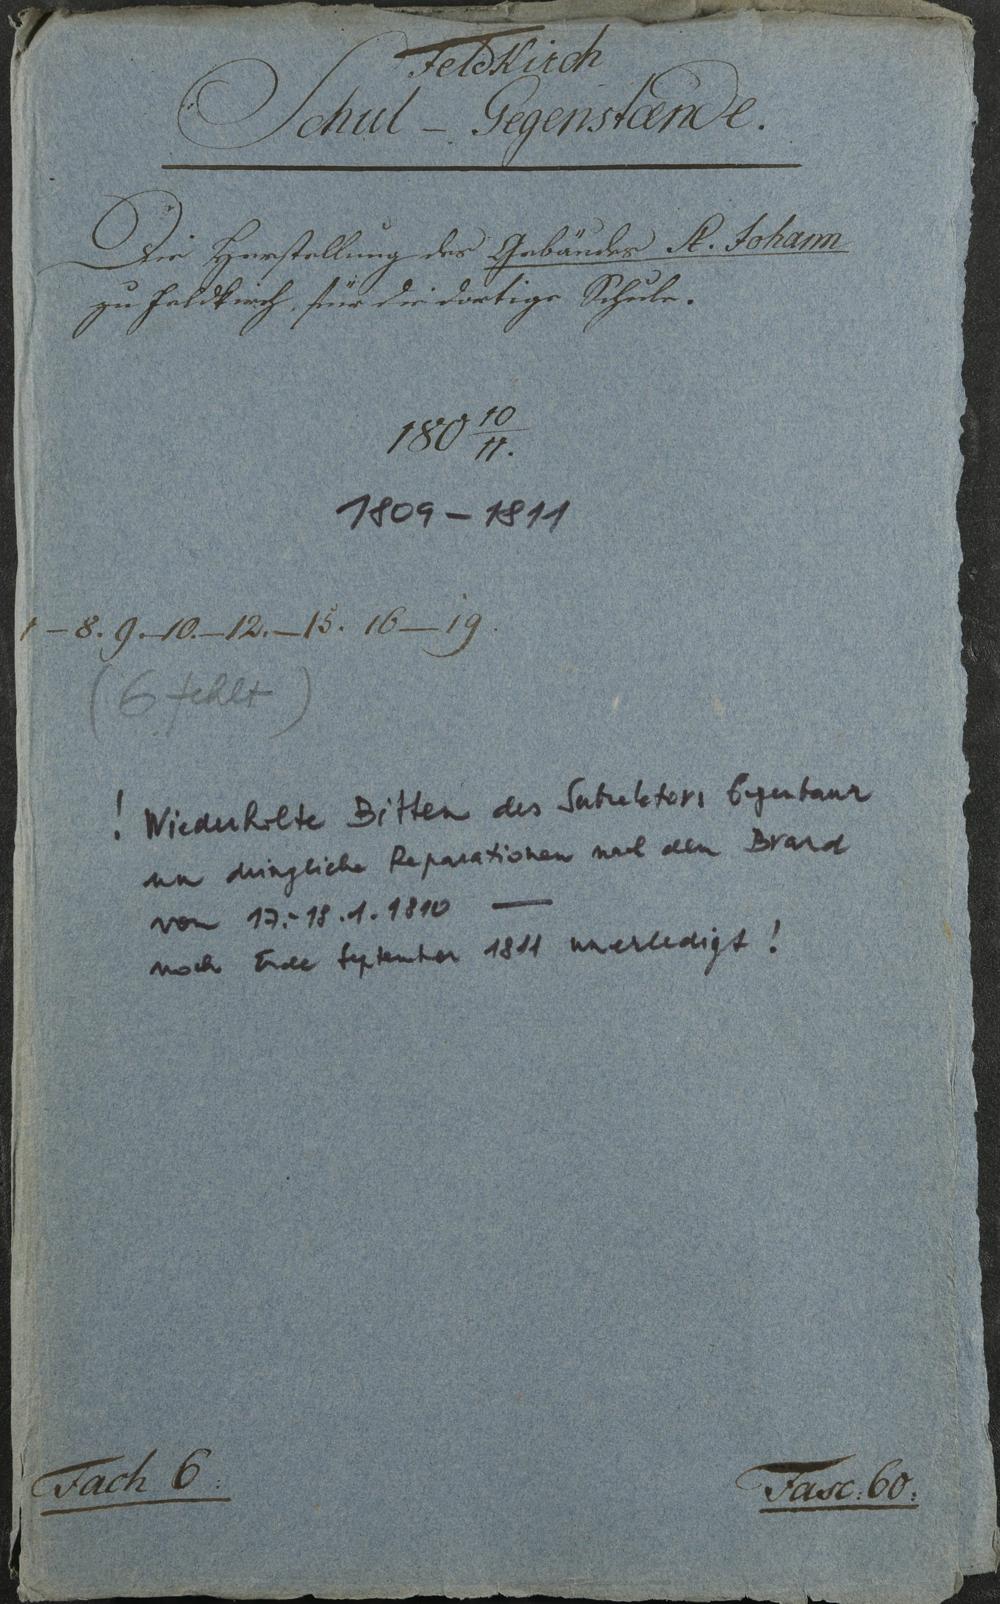 Feldkirch
Schul - Gegenstænde.
Die Herstellung des Gebäudes St. Johann
zu Feldkirch, für die dortige Schule.
180 10/11.
1809 - 1811
1 - 8. 9. - 10. - 12. - 15. 16 - 19.
(6 fehlt)
! Wiederholte Bitten des
um dringliche Reparationen nach dem Brand
vom 17.-18.1.1810 —
noch Ende September 1811 unerledigt !
Fach 6.
Fasc: 60.